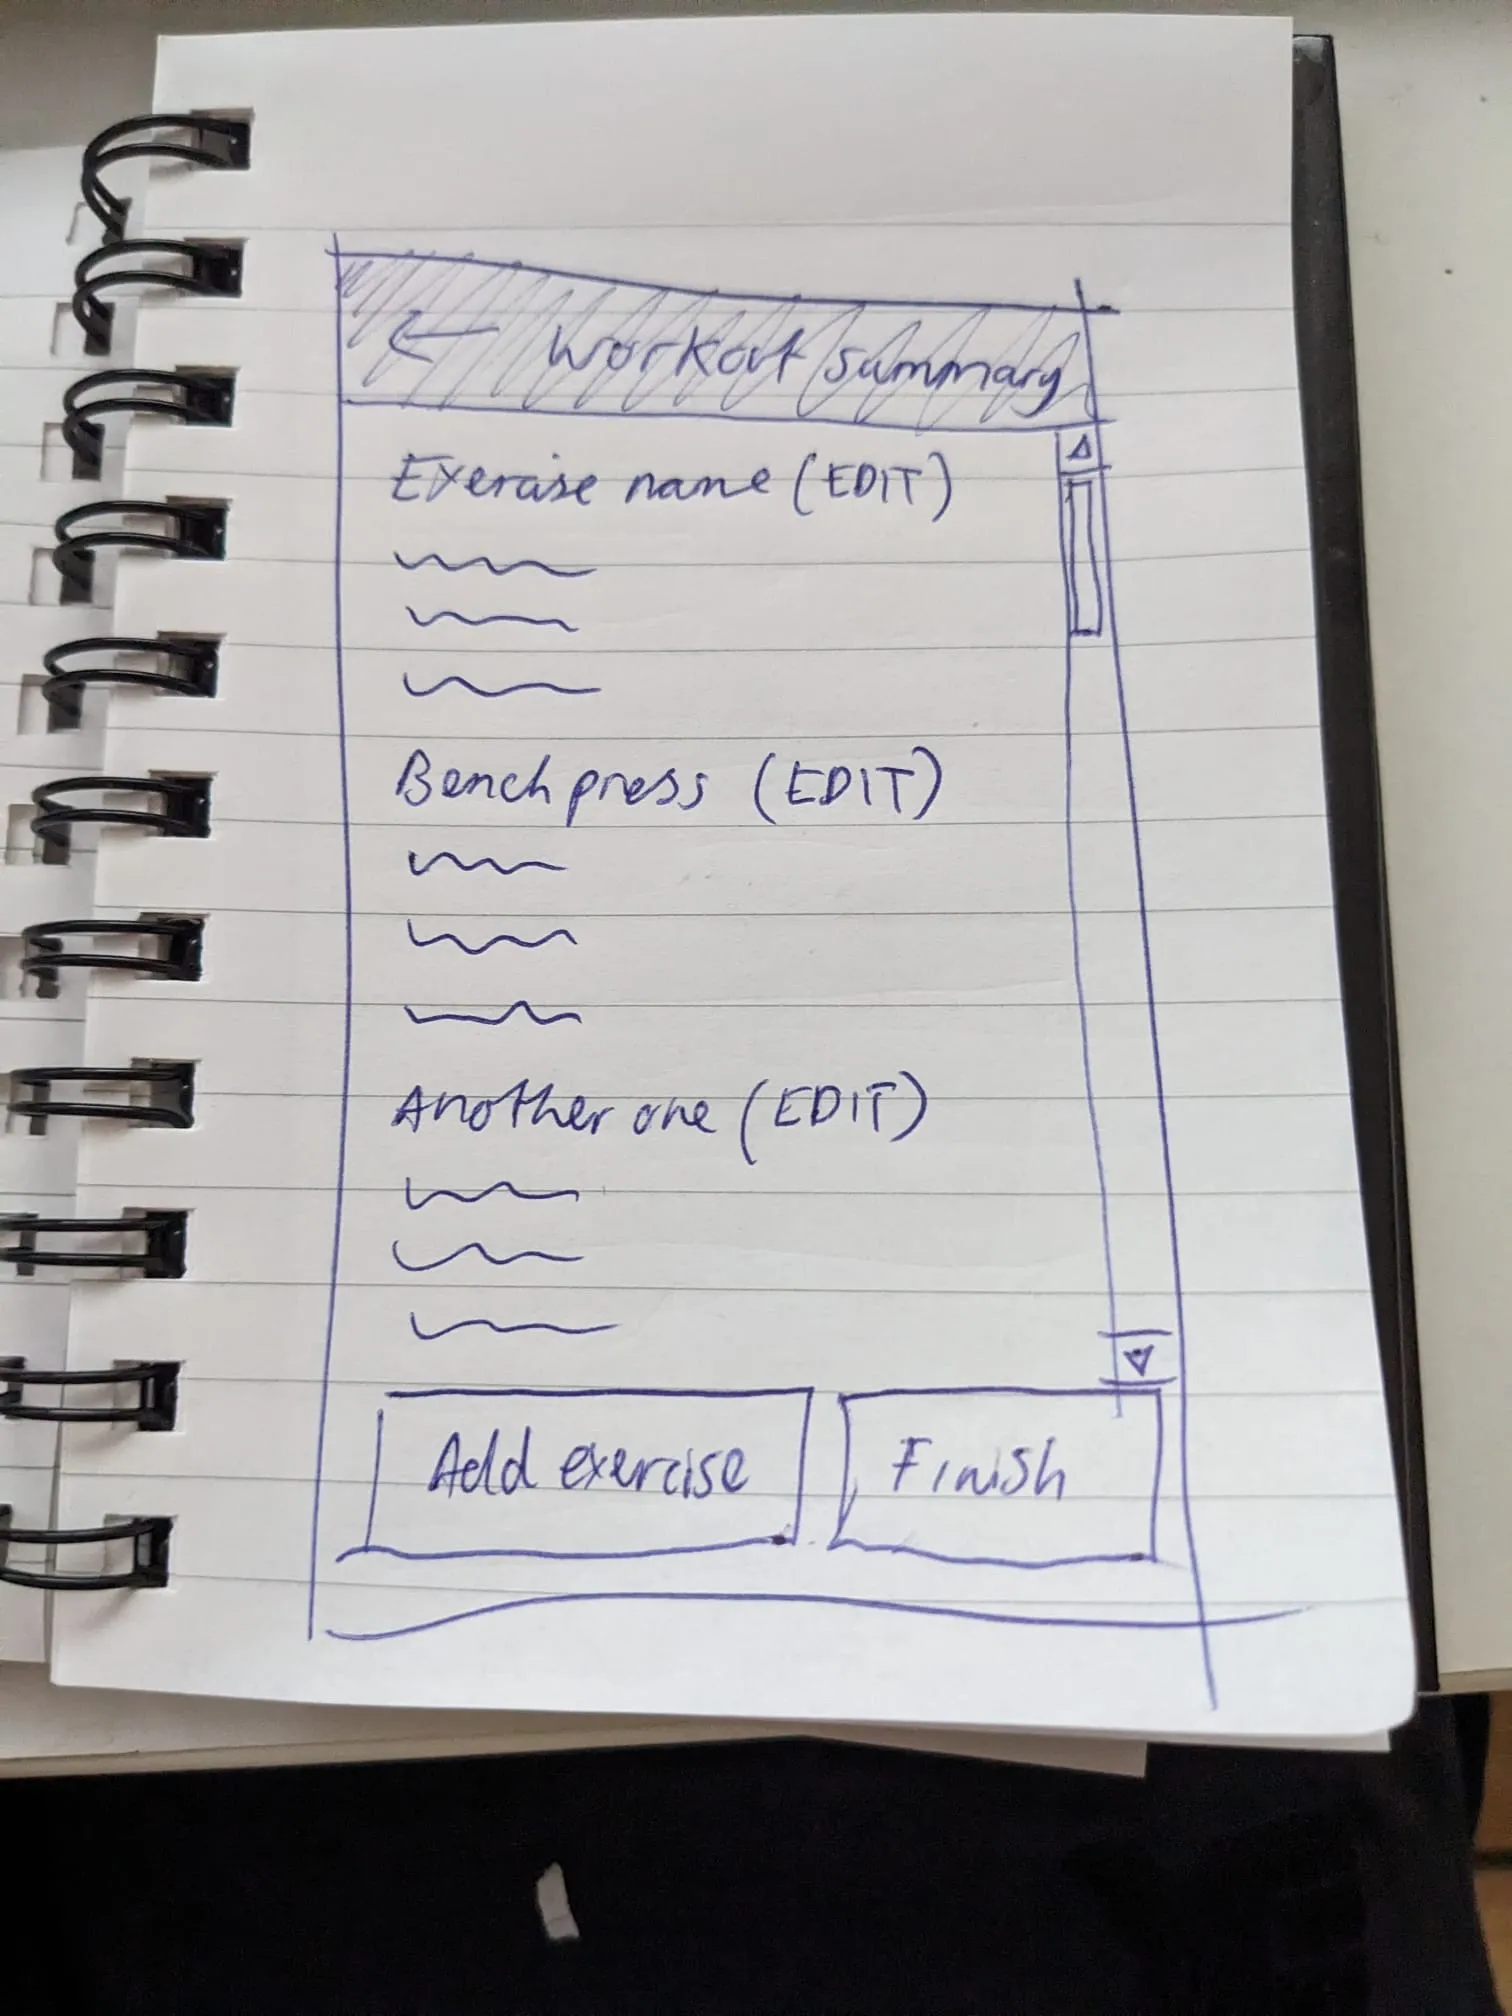 ← Workout summary
Exercise name (EDIT)
Bench press (EDIT)
Another one (EDIT)
Add exercise
Finish